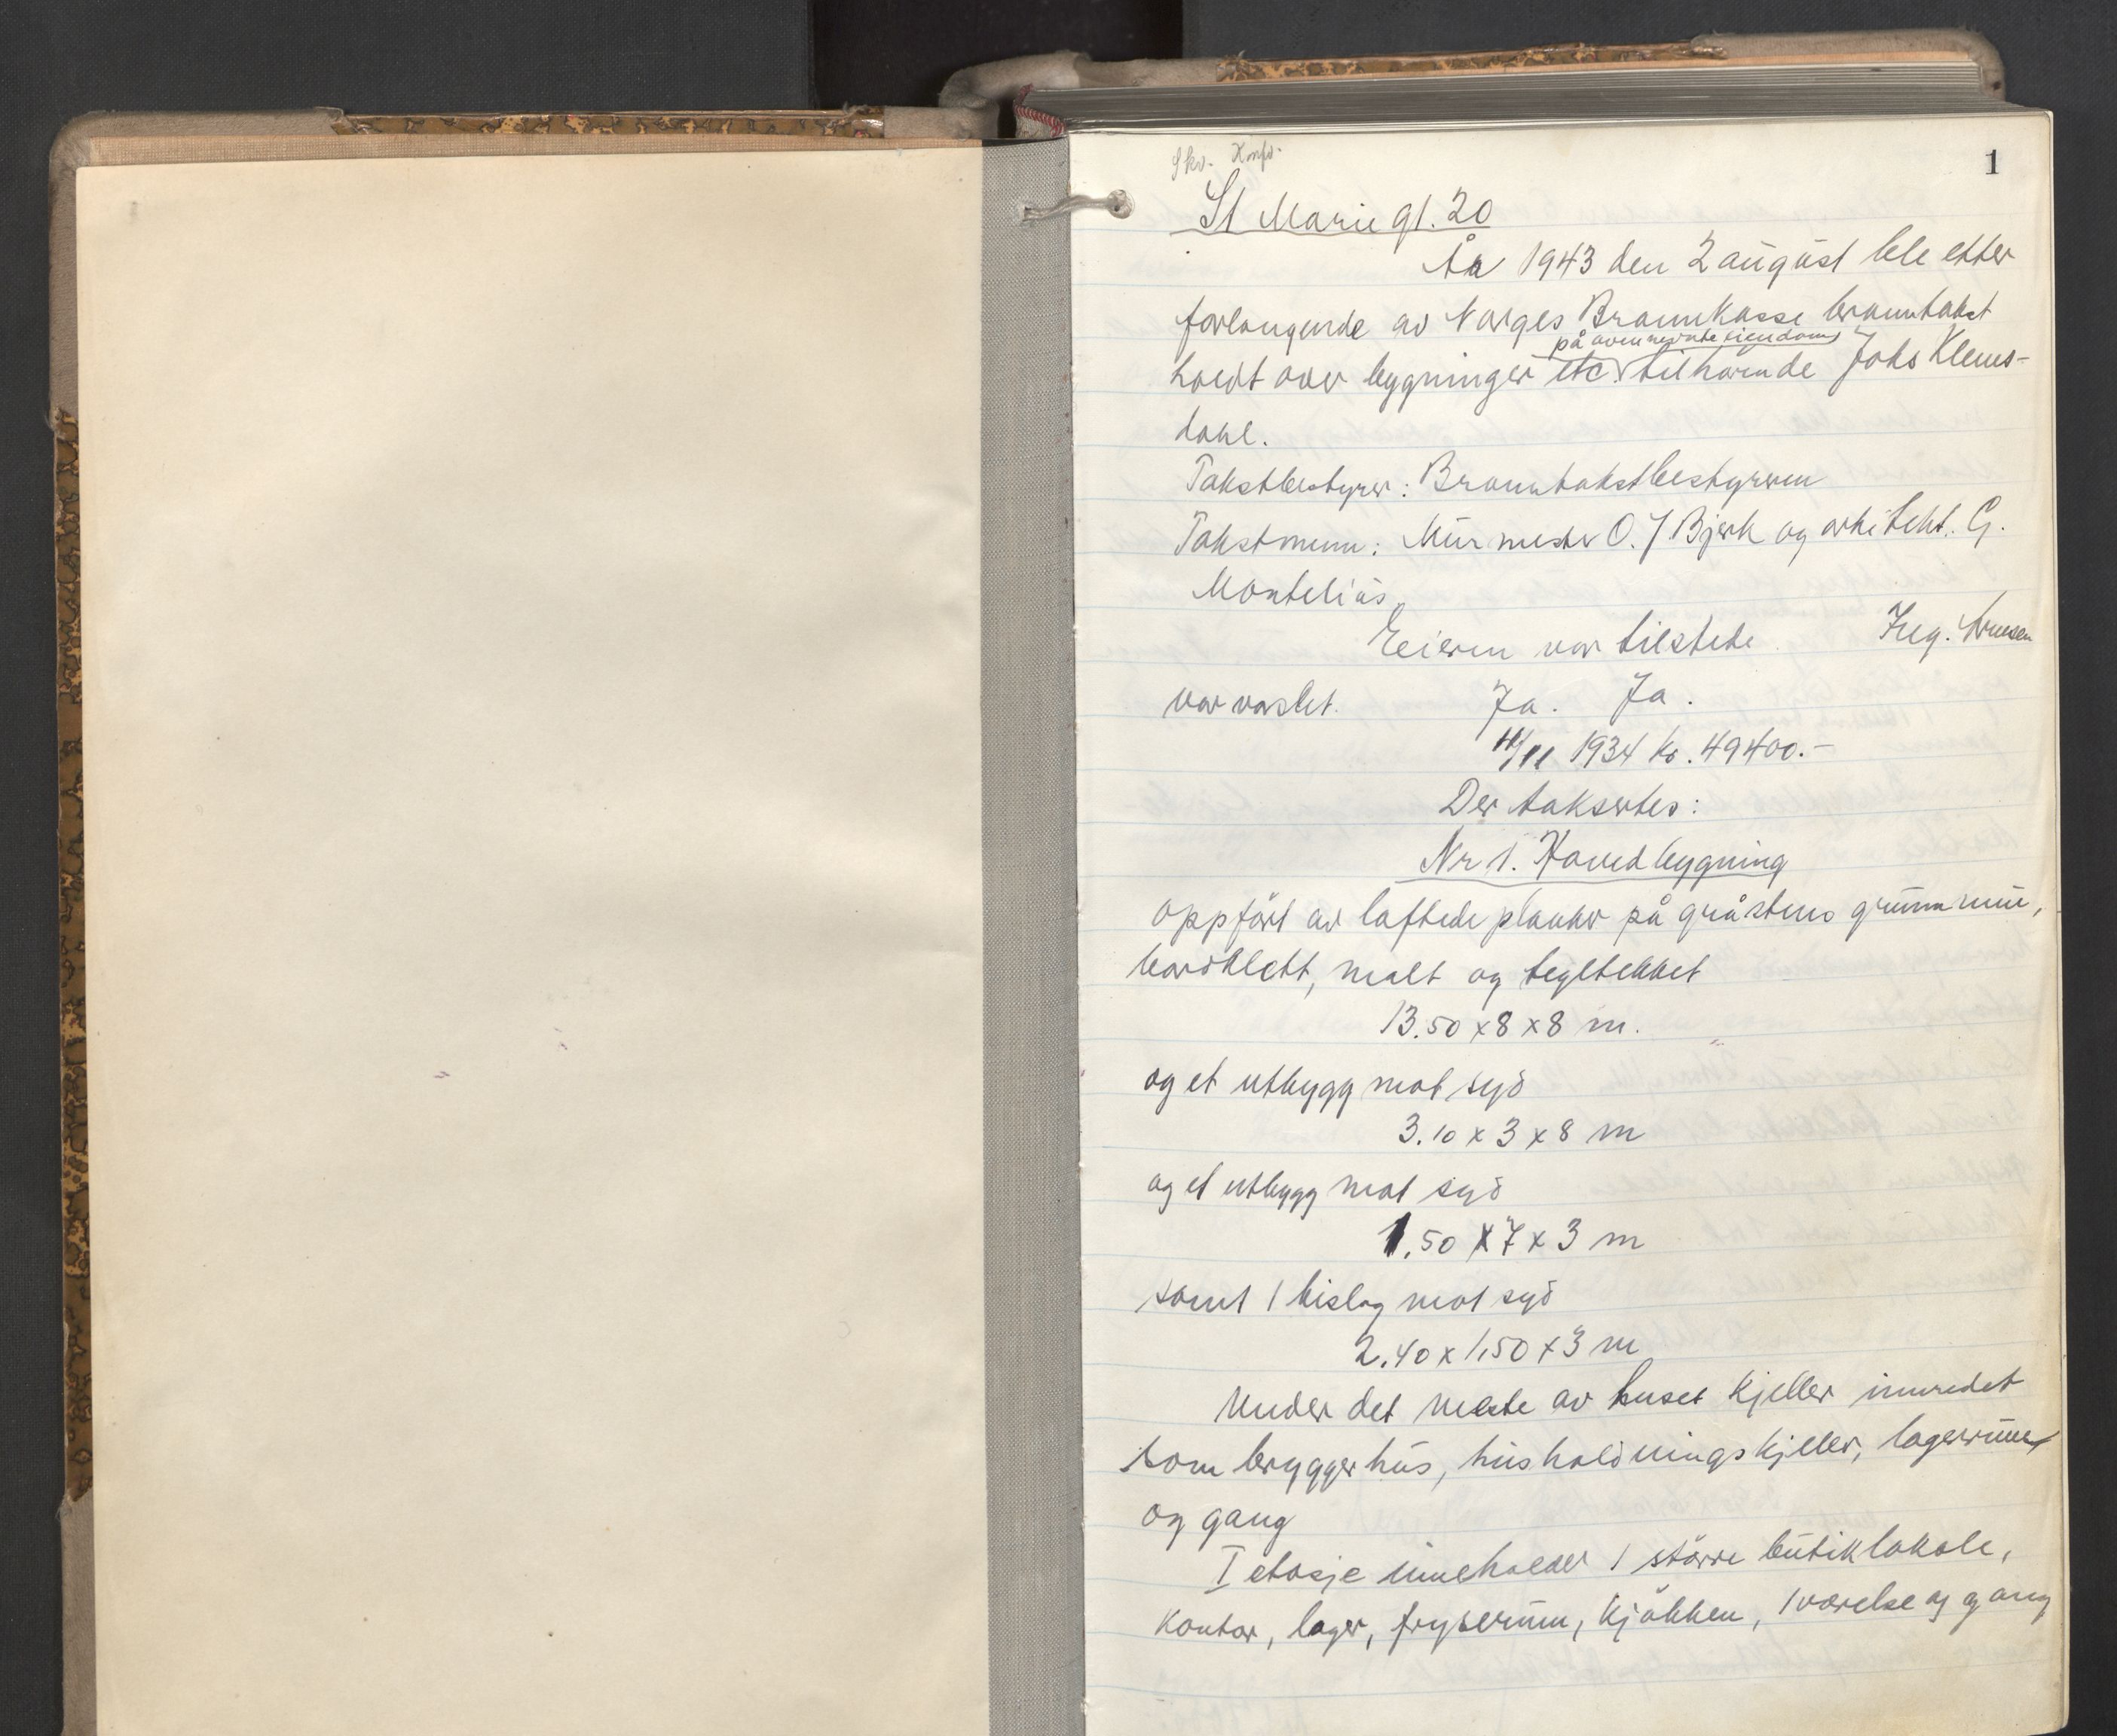 1
Skv. Konfr.
St Marie gt. 20
År 1943 den 2 august ble etter
forlangende av Norges Brannkasse branntakst
på ovennevnte eiendom
holdt over bygninger etc. tilhørende Johs Klems-
dahl.
Takstbestyrer: Branntakstbestyreren
Takstmenn: Murmester O. J. Bjerk og arkitekt. G.
Montelius.
Eieren var tilstede Ing.
var varslet. Ja. Ja.
1934 kr. 49400.-
Der taksertes:
Nr 1. Hovedbygning
oppført av laftede planker på gråstens grunnmur,
bordkledt, malt og tegltekket
13.50 x 8 x 8 m.
og et utbygg mot syd
3.10 x 3 x 8 m
og et utbygg mot syd
1.50 x 7 x 3 m
samt 1 bislag mot syd
2.40 x 1.50 x 3 m
Under det meste av huset kjeller innredet
som bryggerhus, husholdningskjeller, lagerrum
og gang
I etasje inneholder 1 større butiklokale,
kontor, lager, fryserum, kjøkken, 1 værelse og gang